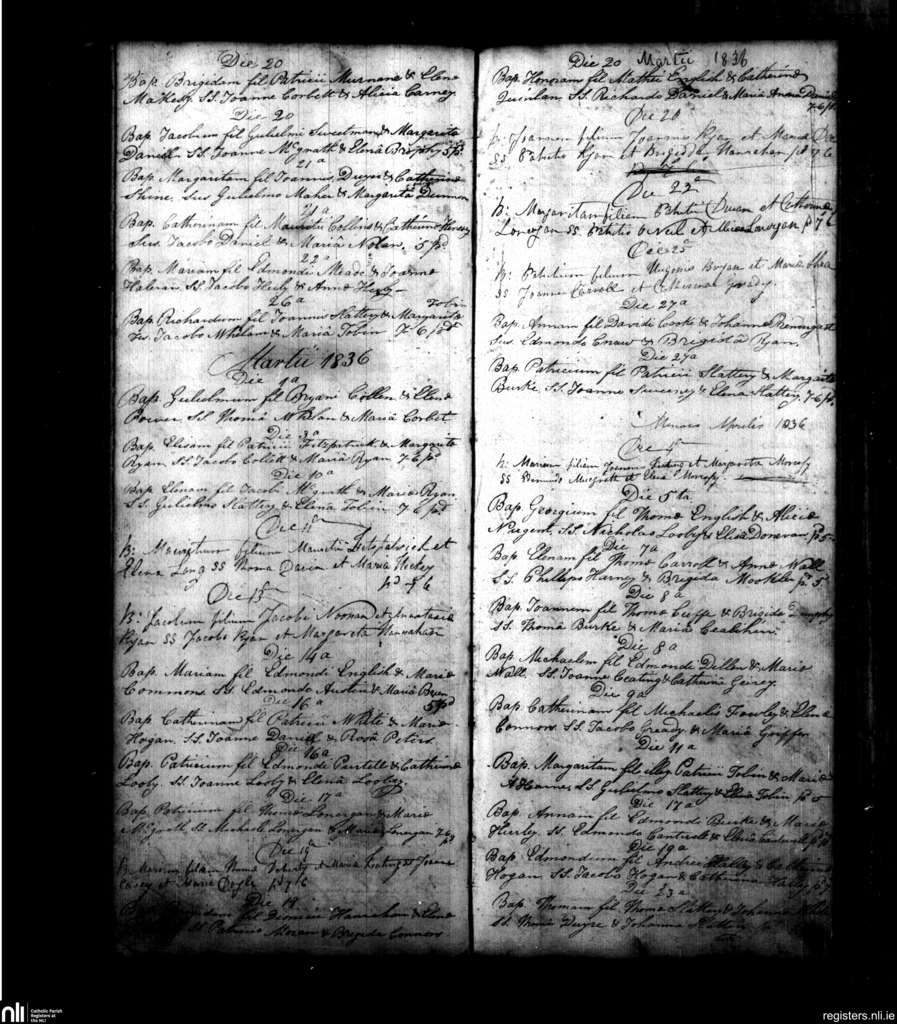 Die 20
Bap. Brigidam fil Patricii Murnane & Elena
Makelly. SS. Joanne Corbett & Alicia Carney
Die 20
Bap. Jacobum fil Gulielmi Sweetman & Margarita
Daniel. SS. Joanne McGrath & Elena Brophy 5 pd.
21a
Bap. Margaritam fil Joannis Dwyer & Catherine
Shine. Sus Gulielmo Maher & Margarita
21a
Bap. Catherinam fil Mauritii Collins & Catherine
Sus. Jacobo Daniel & Maria Nolan. 5 pd
22a
Bap. Mariam fil Edmondi Meade & Joanna
SS. Jacobo Healy & Anne
26a
Bap. Richardum fil Joannis Slattery & Margarita Tobin
Jacobo Whelan & Maria Tobin 7-6 pd
Martii 1836
Die 1a
Bap. Gulielmum fil Bryani Cullen & Elena
Power SS Thoma Whelan & Maria Corbet
Die
Bap. Elisam fil Patricii Fitzpatrick & Margarita
Ryan. SS. Jacobo Collett & Maria Ryan 7-6 pd
Die 10a
Bap. Elenam fil Jacobi McGrath & Maria Ryan
SS. Gulielmo Slattery & Elena Tobin 7-6 pd
Die
B: Mauritium filium Mauritii Fitzpatrick et
Elena Long SS Thoma Davin et Maria Hickey
pd 7 6
Die 13
B: Jacobum filium Jacobi Noonan et Anastasia
Ryan SS Jacobo Ryan et Margarita Hanrahan
Die 14a
Bap. Mariam fil Edmondi English & Maria
Commons SS. Edmondo Austin & Maria Ryan
Die 16a 5 pd
Bap Catherinam fil Patricii White & Maria
Hogan. SS. Joanne Daniel & Rosa Peters
Die 16a
Bap. Patricium fil Edmondi Purtell & Catherine
Looby. SS. Joanne Looby & Elena Looby
Die 17a
Bap. Patricium fil Thoma Lonergan & Maria
McGrath SS Michaele Lonergan & Maria Lonergan
Die
B: filiam Thoma et Maria
et Maria Doyle pd 7 6
Die 18
fil Dionisii Hanrahan & Elena
SS Patricio & Brigida Connors
Die 20 Martii 1836
Bap. Honoram fil Mathei English & Catherina
Quinlan. SS. Richardo Daniel & Maria Anna Daniel
7-6 pd
Die 20
B: Joannem filium Joannis Ryan et Maria
SS Patritio Ryan et Brigida Hanrahan pd 7 6
Die 22a
B: Margaritam filiam Patritii Dwan et Catherina
Lonergan SS Patritio O Neil et Alicia Lonergan pd 7 6
Die 25
B: Patritium filium Eugenii Bryan et Maria Shea
SS Joanne Carroll et
Die 27a
Bap. Annam fil Davidi Cooke & Johanna Prendergast
Sus. Edmondo & Brigida Ryan.
Die 27a
Bap. Patricium fil Patricii Slattery & Margarita
Burke. SS. Joanne Sweeney & Elena Slattery 7-6 pd.
Mensis Aprilis 1836
Die
B: Mariam filiam Joannis Keating et Margarita
SS Edmundo et Elena
Die 5ta
Bap Georgium fil Thoma English & Alicia
Nugent. SS. Nicholas Looby & Elisa Donovan pd 5
Die 7a
Bap Elenam fil Thoma Carroll & Anne Wall
SS. Phillipo Harney & Brigida Mockler pd 5
Die 8a
Bap. Joannem fil Thoma & Brigida Dunphy
SS. Thoma Burke & Maria
Die 8a
Bap Michaelem fil Edmondi Dillon & Maria
Wall. SS. Joanne Ceating & Catherina
Die 9a
Bap. Catherinam fil Michaelis Fowley & Elena
Connors SS. Jacobo Gready & Maria Griffin
Die 11a
Bap. Margaritam fil Patricii Tobin & Maria
AHearne, SS Gulielmo Slattery & Elena Tobin pd 5
Die 17a
Bap. Annam fil Edmondi Burke & Maria
Hurley. SS. Edmondo Cantwell & Elena Cantwell
Die 19a
Bap. Edmondum fil Andrei & Catherina
Hogan SS. Jacobo Hogan & Catherina
Die 23a
Bap. Thomam fil Thoma Slattery & Johanna
SS. Thoma Dwyre & Johanna
nli
Catholic Parish
Registers at
the NLI
registers.nli.ie